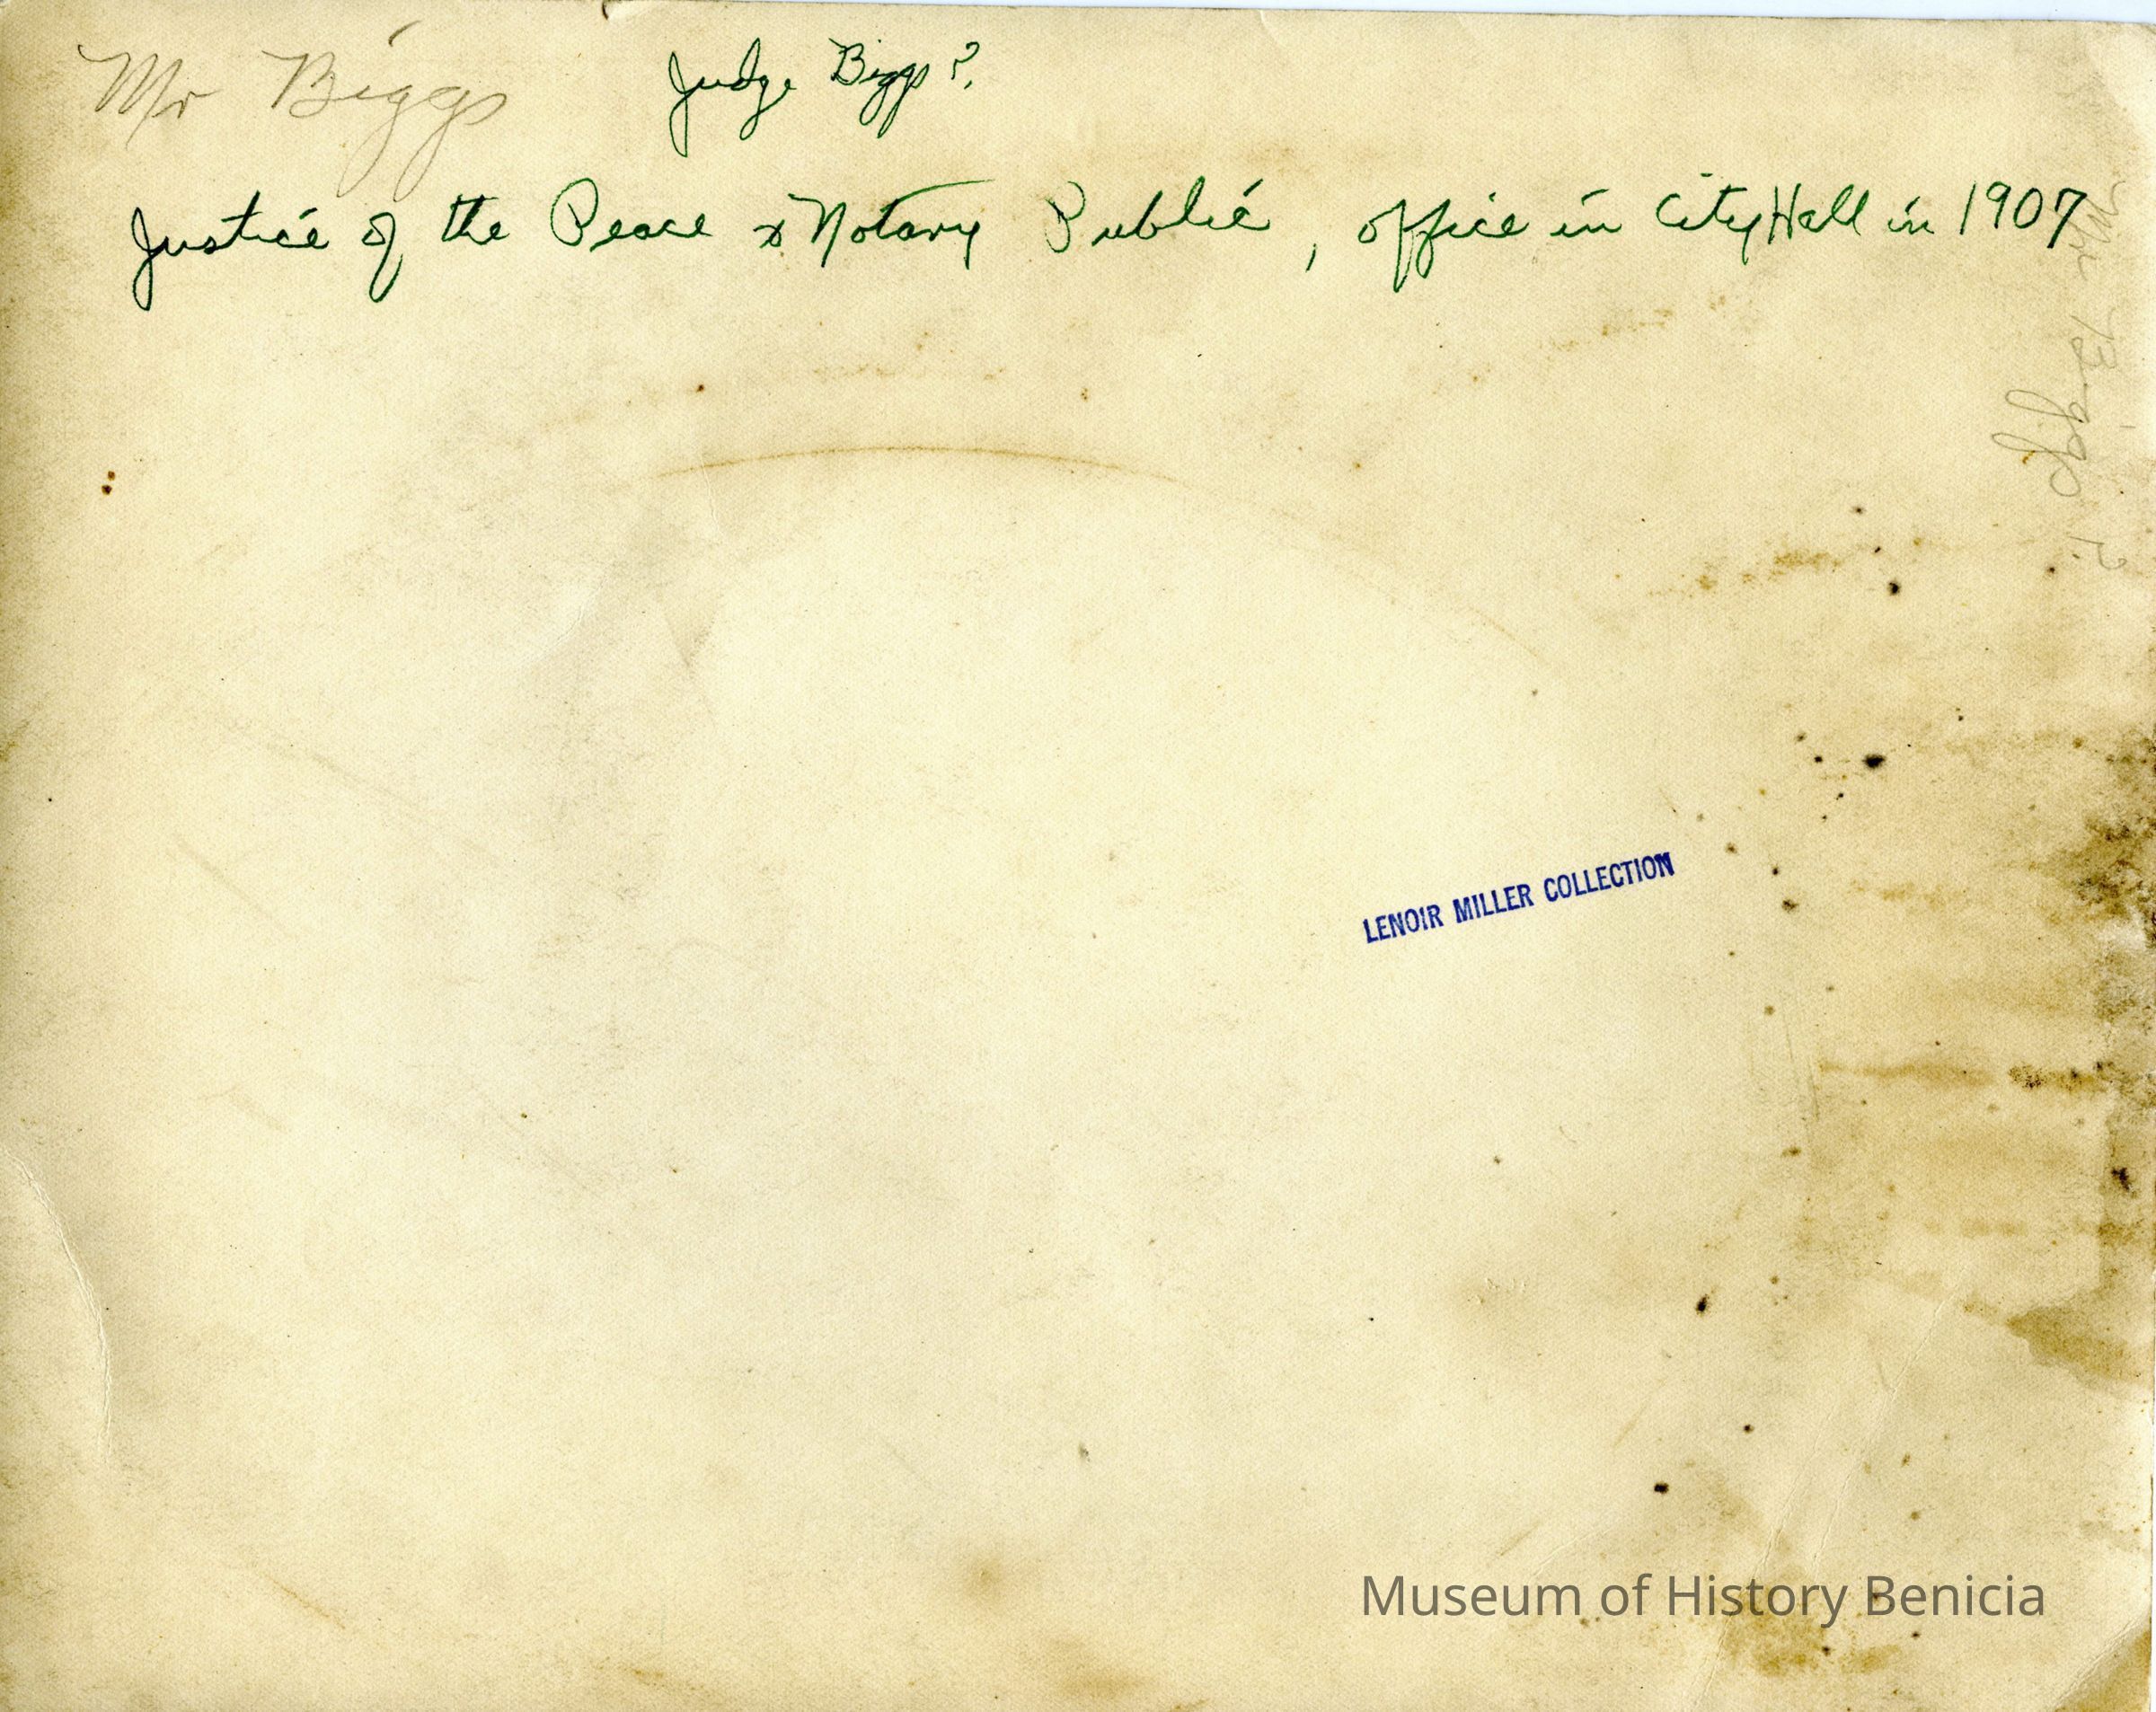 Mr Biggs
Judge Biggs?
Justice of the Peace & Notary Public, office in City Hall in 1907
Mr Biggs?
LENOIR MILLER COLLECTION
Museum of History Benicia